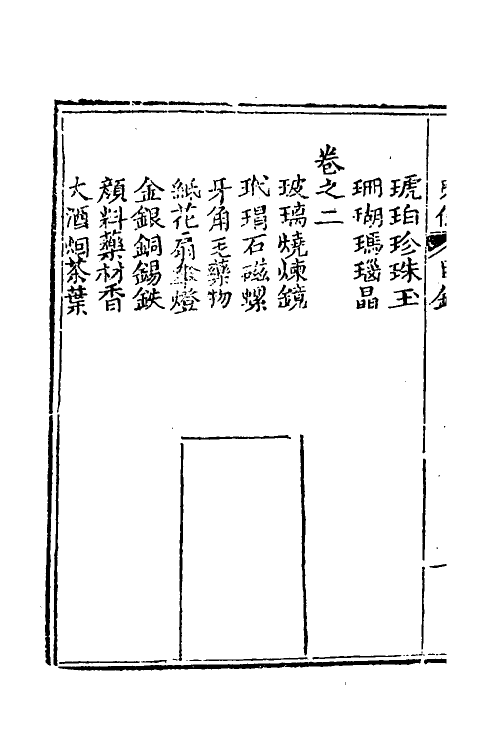 目錄
琥珀珍珠玉
珊瑚瑪瑙晶
卷之二
玻璃燒煉鏡
玳瑁石磁螺
牙角毛藥物
紙花扇傘燈
金銀銅錫鉄
顏料藥材香
大酒烟茶葉
一